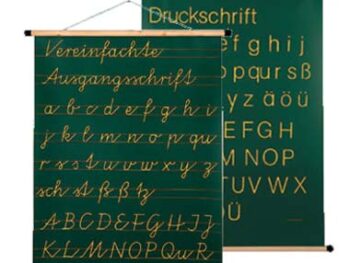 Vereinfachte
Ausgangsschrift
a b c d e f g h i
j k l m n o p qu
r s s t u v w x y z
sch st ß ß tz
A B C D E F G H I J
K L M N O P Qu R
Druckschrift
e f g h i j
o p qu r s ß
y z ä ö ü
E F G H
M N O P
T U V W
Ü